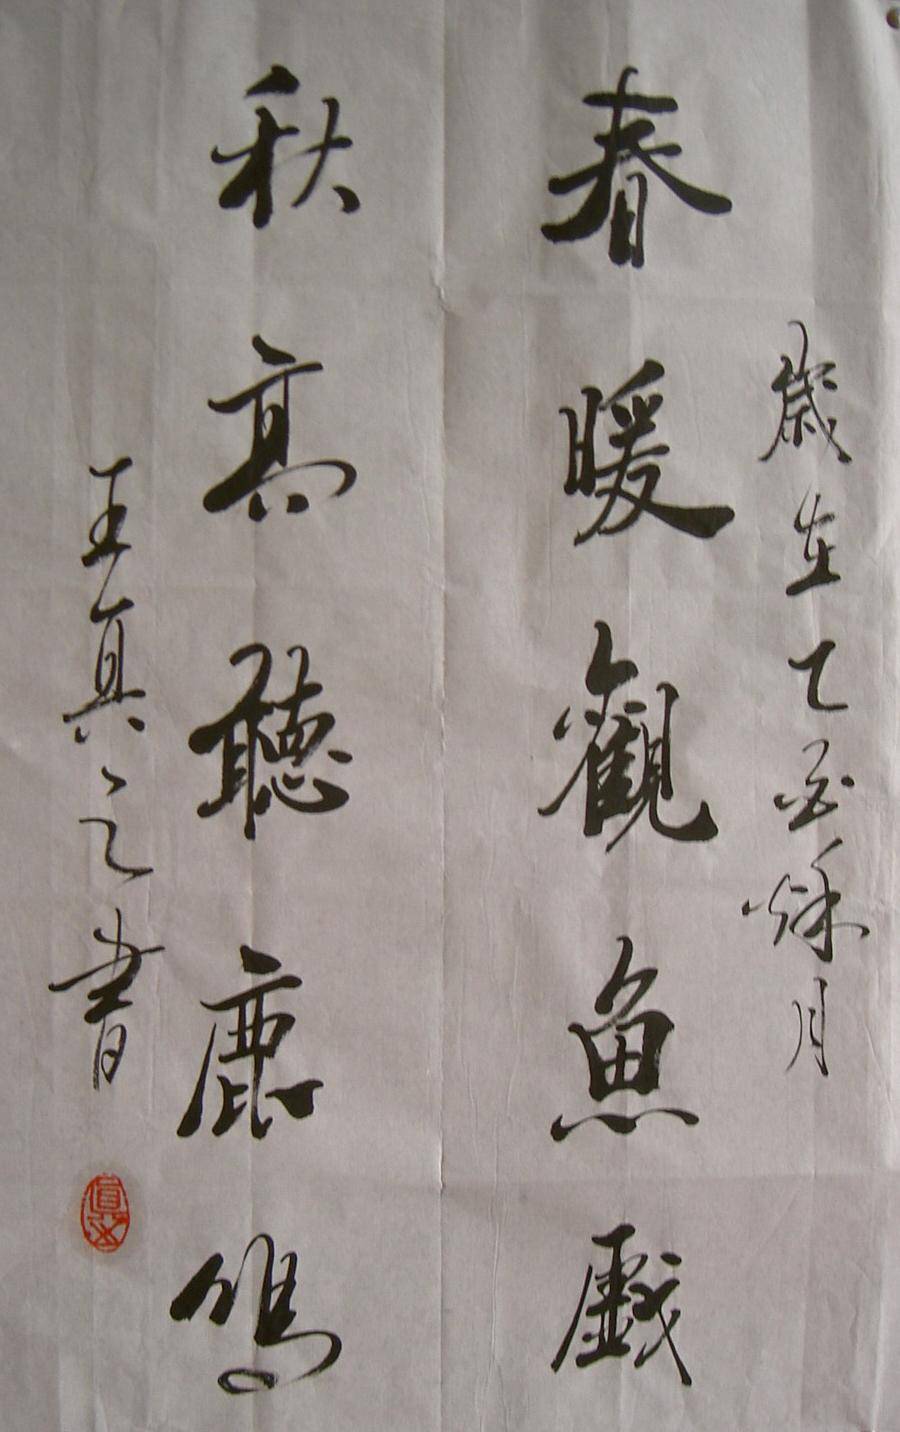 歲在乙酉穐月
春暖觀魚戲
秋高聽鹿鳴
王真之書